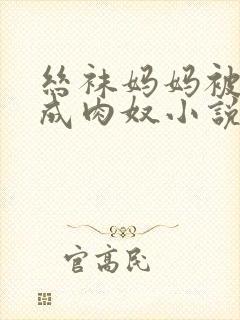 丝袜妈妈被
成肉奴小说
官高民